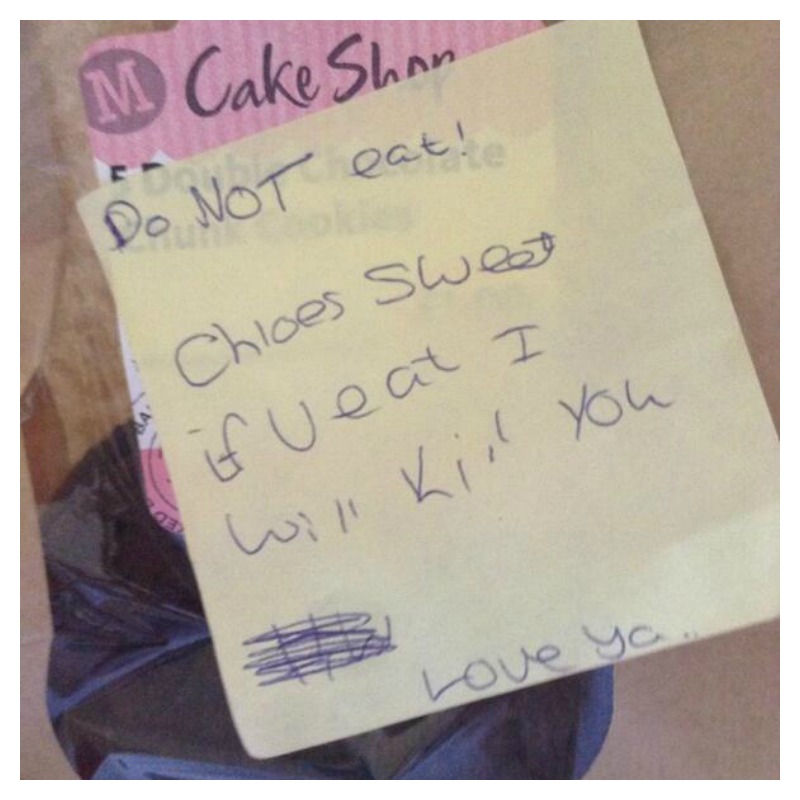 M Cake Shop
5 Double Chocolate
Chunk Cookies
Do NOT eat!
Chloes Sweet
if U eat I
will Kill You
Love ya..